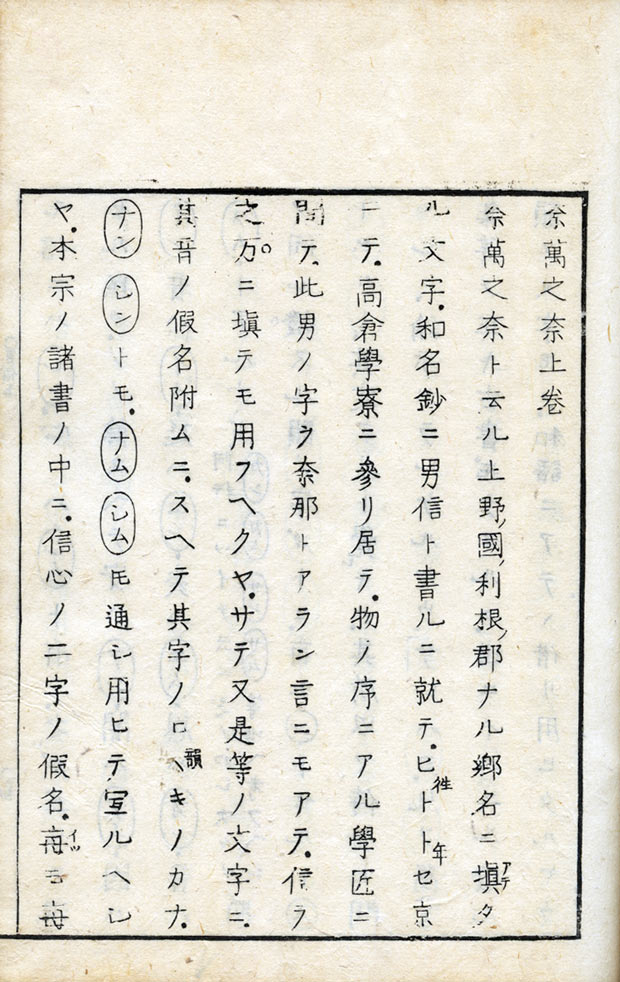 奈萬之奈上卷
奈萬之奈ト云ル上野ノ國ノ利根ノ郡ナル鄉名ニ塡アテタ
ル文字。和名鈔ニ男信ト書ルニ就テ。ヒトト徃年セ京
ニテ。高倉學寮ニ參リ居テ。物ノ序ニアル學匠ニ
問テ。此男ノ字ヲ奈那トアラン言ニモアテ。信ヲ
之万。ニ塡テモ用フヘクヤ。サテ又是等ノ文字ニ。
其音ノ假名附ムニ。スヘテ其字ノ韻ヘキノカナ。
ナン シントモ。ナム シムトモ通シ用ヒテ宜ルヘシ
ヤ。本宗ノ諸書ノ中ニ。信心ノ二字ノ假名。毎イツモ毎